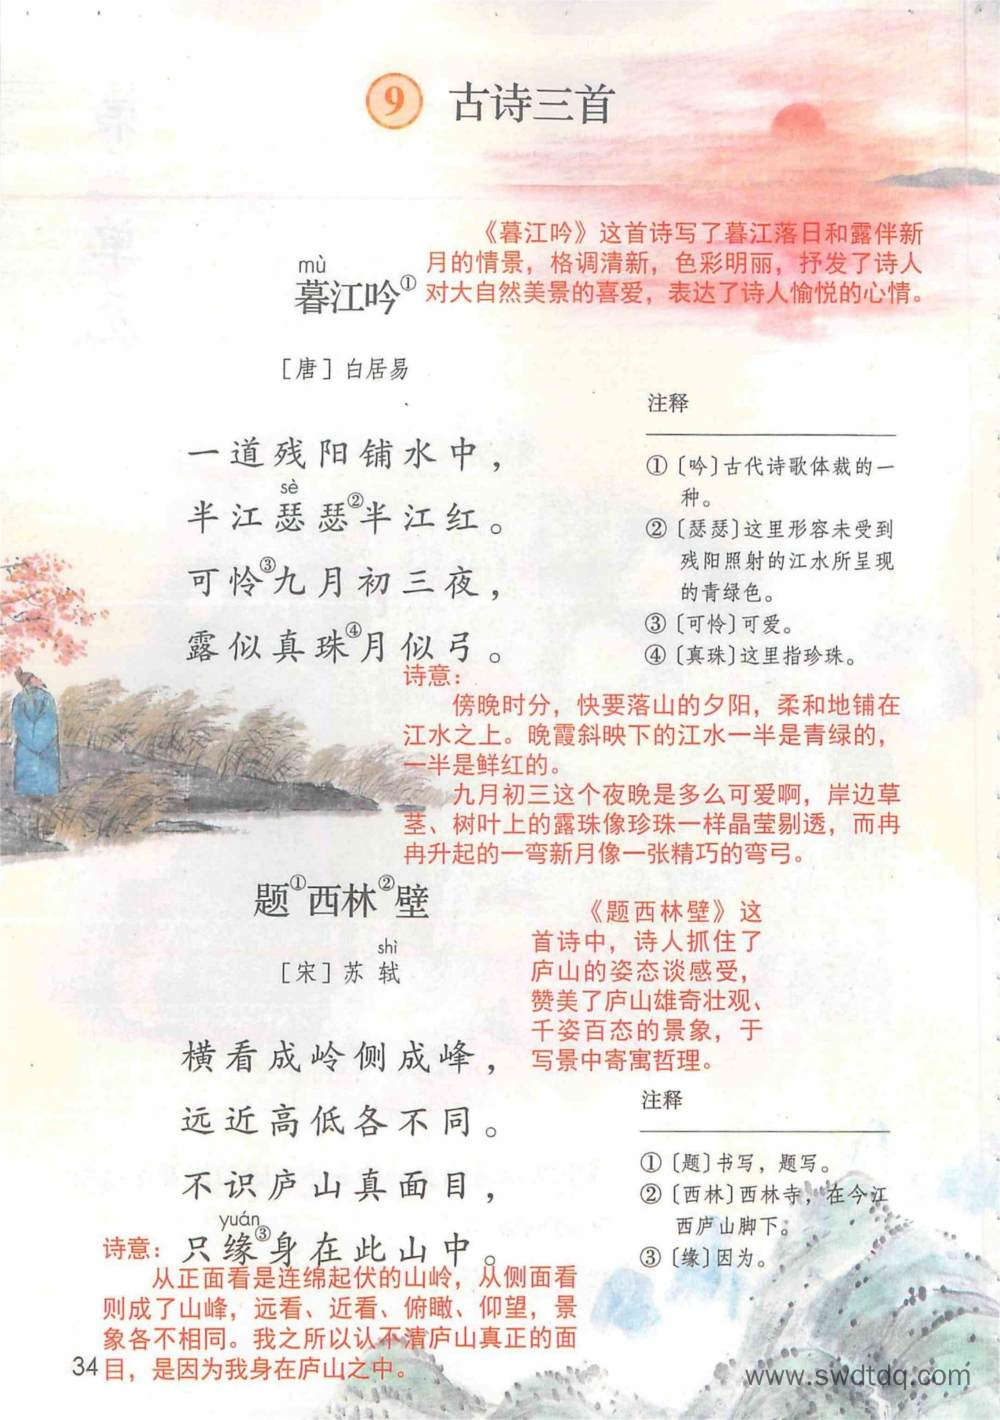 9 古诗三首
《暮江吟》这首诗写了暮江落日和露伴新
月的情景，格调清新，色彩明丽，抒发了诗人
对大自然美景的喜爱，表达了诗人愉悦的心情。
mù
暮江吟①
［唐］白居易
一道残阳铺水中，
sè
半江瑟瑟②半江红。
可怜③九月初三夜，
露似真珠④月似弓。
注释
①〔吟〕古代诗歌体裁的一
种。
②〔瑟瑟〕这里形容未受到
残阳照射的江水所呈现
的青绿色。
③〔可怜〕可爱。
④〔真珠〕这里指珍珠。
诗意：
傍晚时分，快要落山的夕阳，柔和地铺在
江水之上。晚霞斜映下的江水一半是青绿的，
一半是鲜红的。
九月初三这个夜晚是多么可爱啊，岸边草
茎、树叶上的露珠像珍珠一样晶莹剔透，而冉
冉升起的一弯新月像一张精巧的弯弓。
题①西林②壁
shì
［宋］苏 轼
《题西林壁》这
首诗中，诗人抓住了
庐山的姿态谈感受，
赞美了庐山雄奇壮观、
千姿百态的景象，于
写景中寄寓哲理。
横看成岭侧成峰，
远近高低各不同。
不识庐山真面目，
yuán
只缘③身在此山中。
注释
①〔题〕书写，题写。
②〔西林〕西林寺，在今江
西庐山脚下。
③〔缘〕因为。
诗意：
从正面看是连绵起伏的山岭，从侧面看
则成了山峰，远看、近看、俯瞰、仰望，景
象各不相同。我之所以认不清庐山真正的面
目，是因为我身在庐山之中。
34
www.swdtdq.com